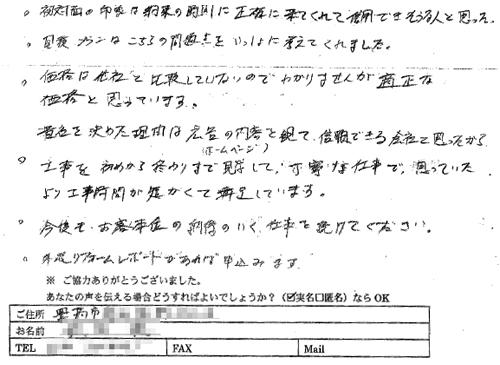 。初対面の印象は約束の時間に正確に来てくれて信用できそうな人と思った。
。図面プランはこちらの問題点をいっしょに考えてくれました。
。価格は他社と比較していないのでわかりませんが適正な
価格と思っています。
貴社を決めた理由は広告の内容を観て、信頼できる会社と思ったから
(ホームページ)
。工事を初めから終わりまで見ていて、丁寧な仕事で、思っていた
より工事時間が短かくて満足しています。
。今後も、お客本位の納得のいく仕事を続けてください。
。リフォームレポートがあれば申込みます
※ ご協力ありがとうございました。
あなたの声を伝える場合どうすればよいでしょうか？（☑実名□匿名）なら OK
ご住所 市
お名前
TEL FAX Mail